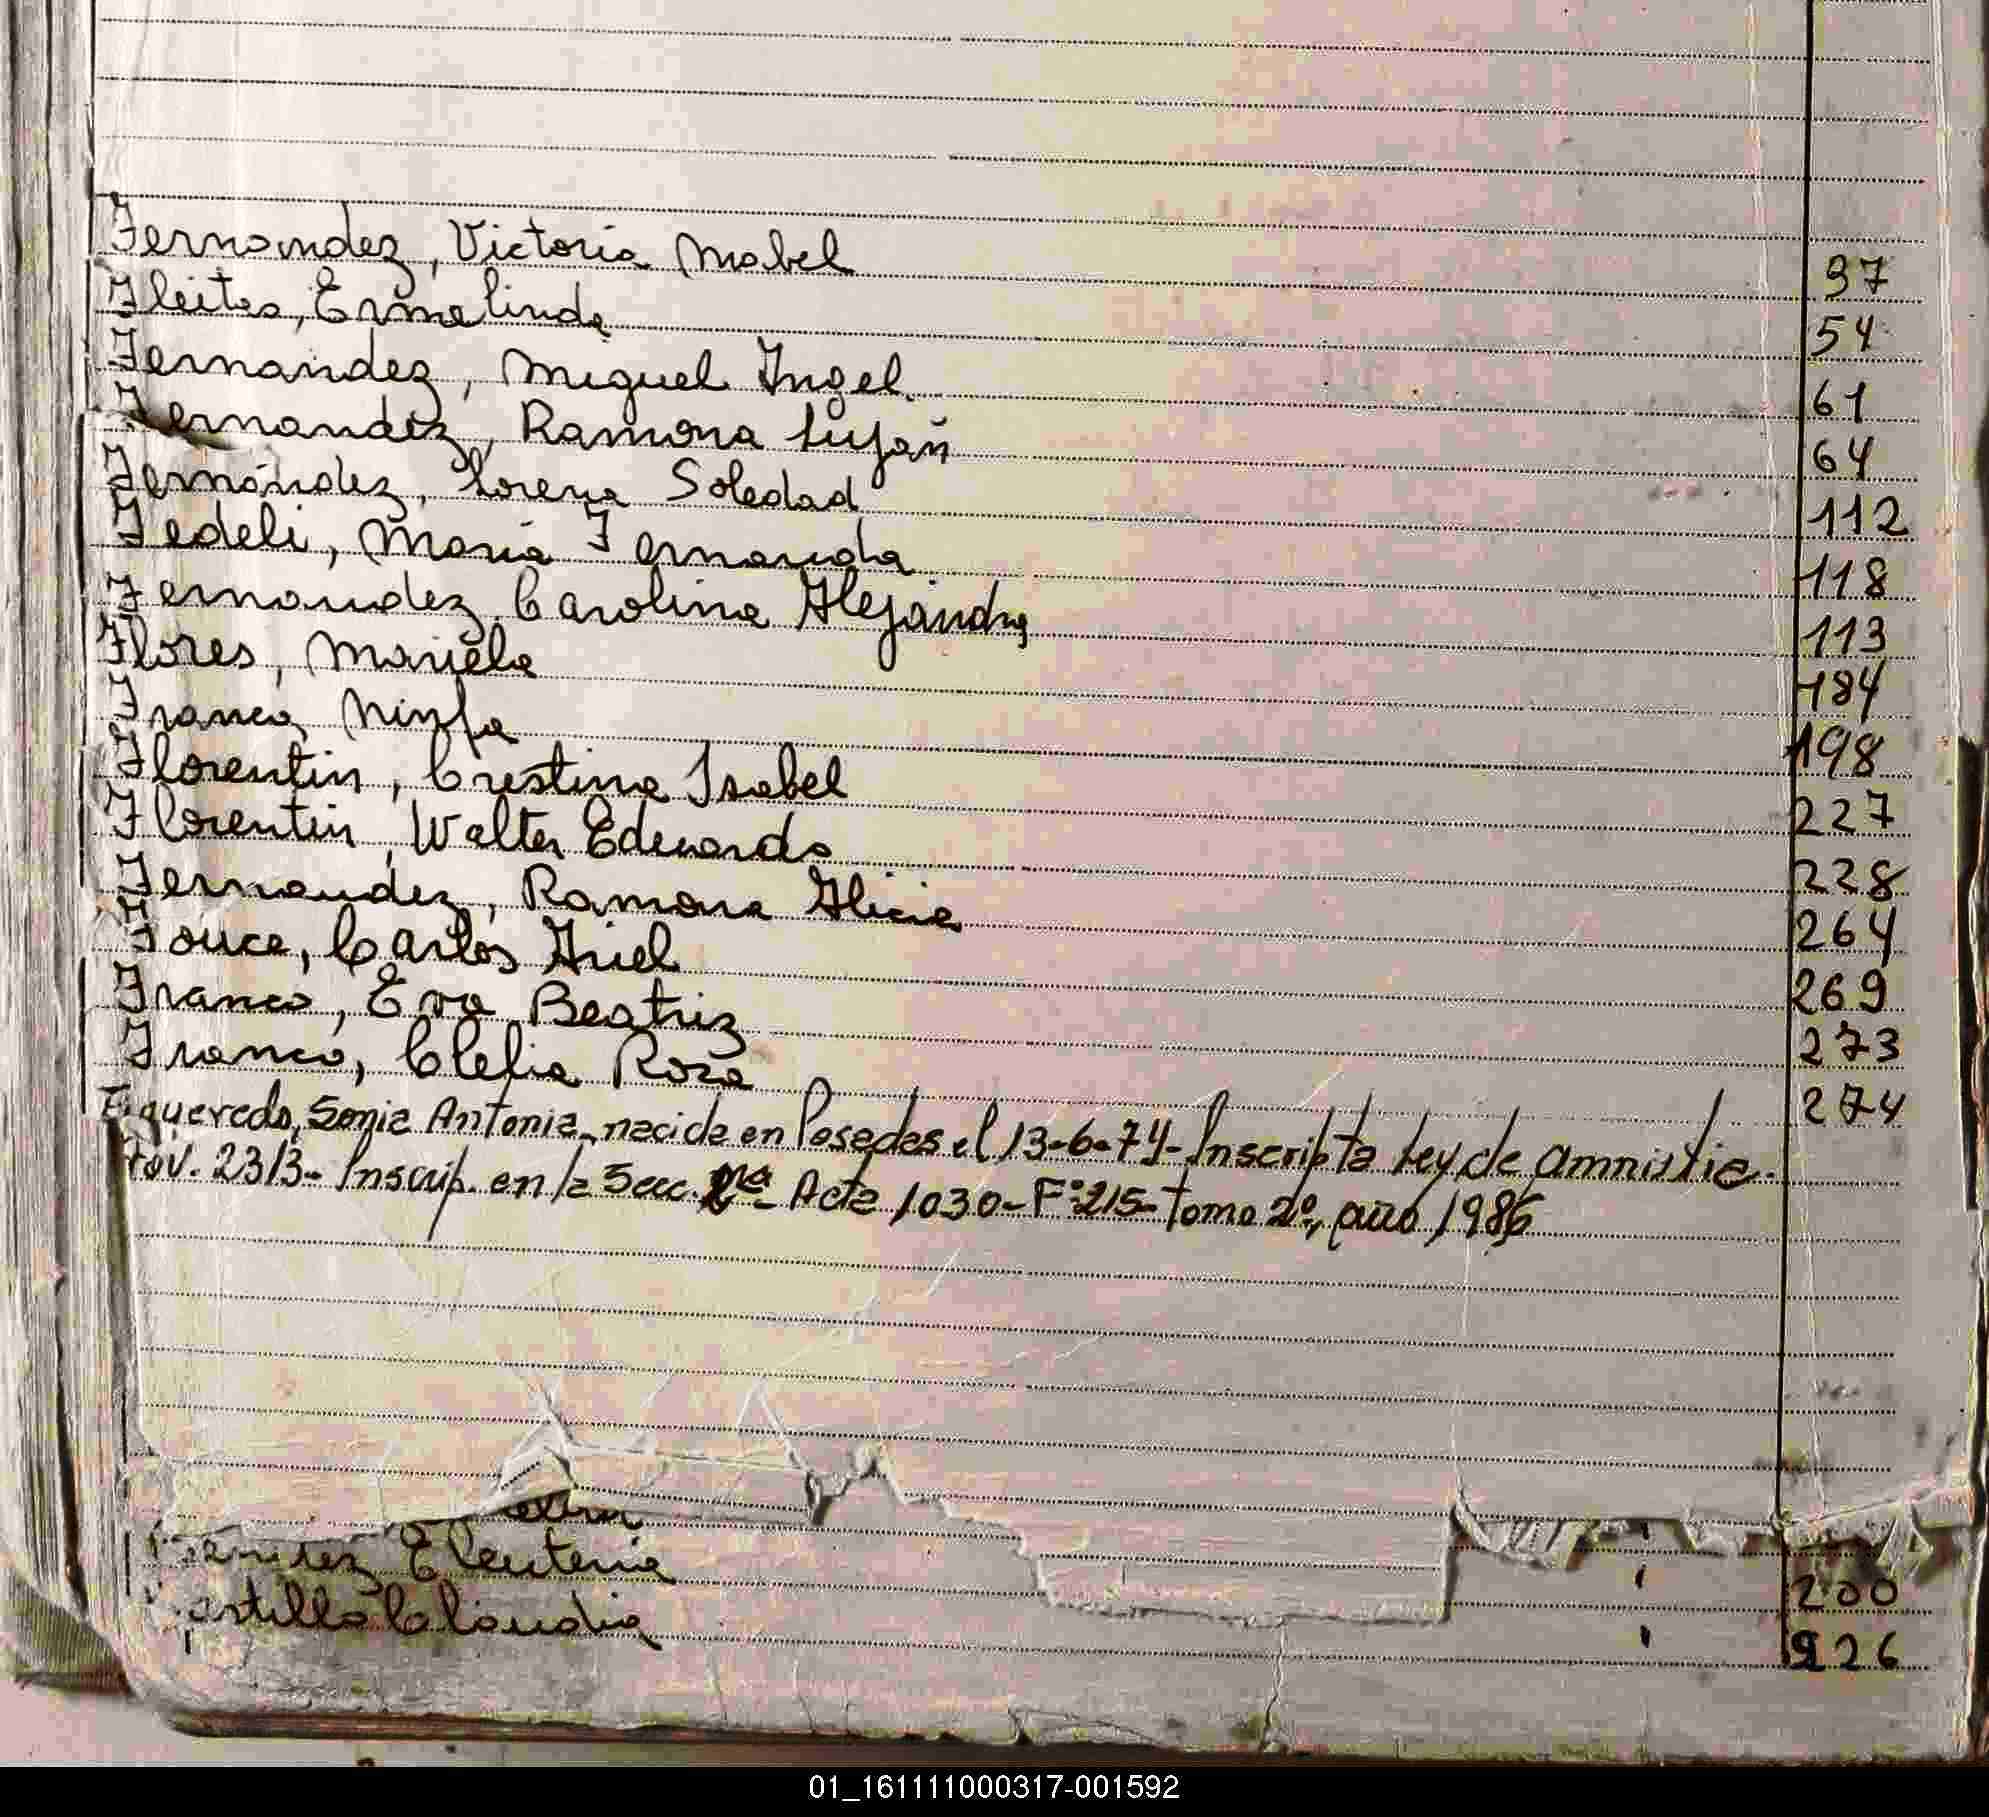 Fernandez, Victoria Mabel 37
Fleitas, Ermelinda 54
Fernandez, Miguel Angel. 61
Fernandez, Ramona Luján 64
Fernández, Lorena Soledad 112
Fedeli, Maria Fernanda 118
Fernandez, Carolina Alejandra 113
Flores, Mariela 184
Franco, Ninfa 198
Florentin, Cristina Isabel 227
Florentin, Walter Eduardo 228
Fernandez, Ramona Alicia 264
Fouce, Carlos Ariel 269
Franco, Eva Beatriz 273
Franco, Clelia Rosa 274
Figueredo, Sonia Antonia, nacida en Posadas el 13-6-74- Inscripta Ley de Amnistia.
Prov. 2313- Inscrip. en la Secc. 2ª- Acta 1030- Fº 215- Tomo 2º, año 1986
Eleuteria 200
Castillo Claudia 226
01_161111000317-001592